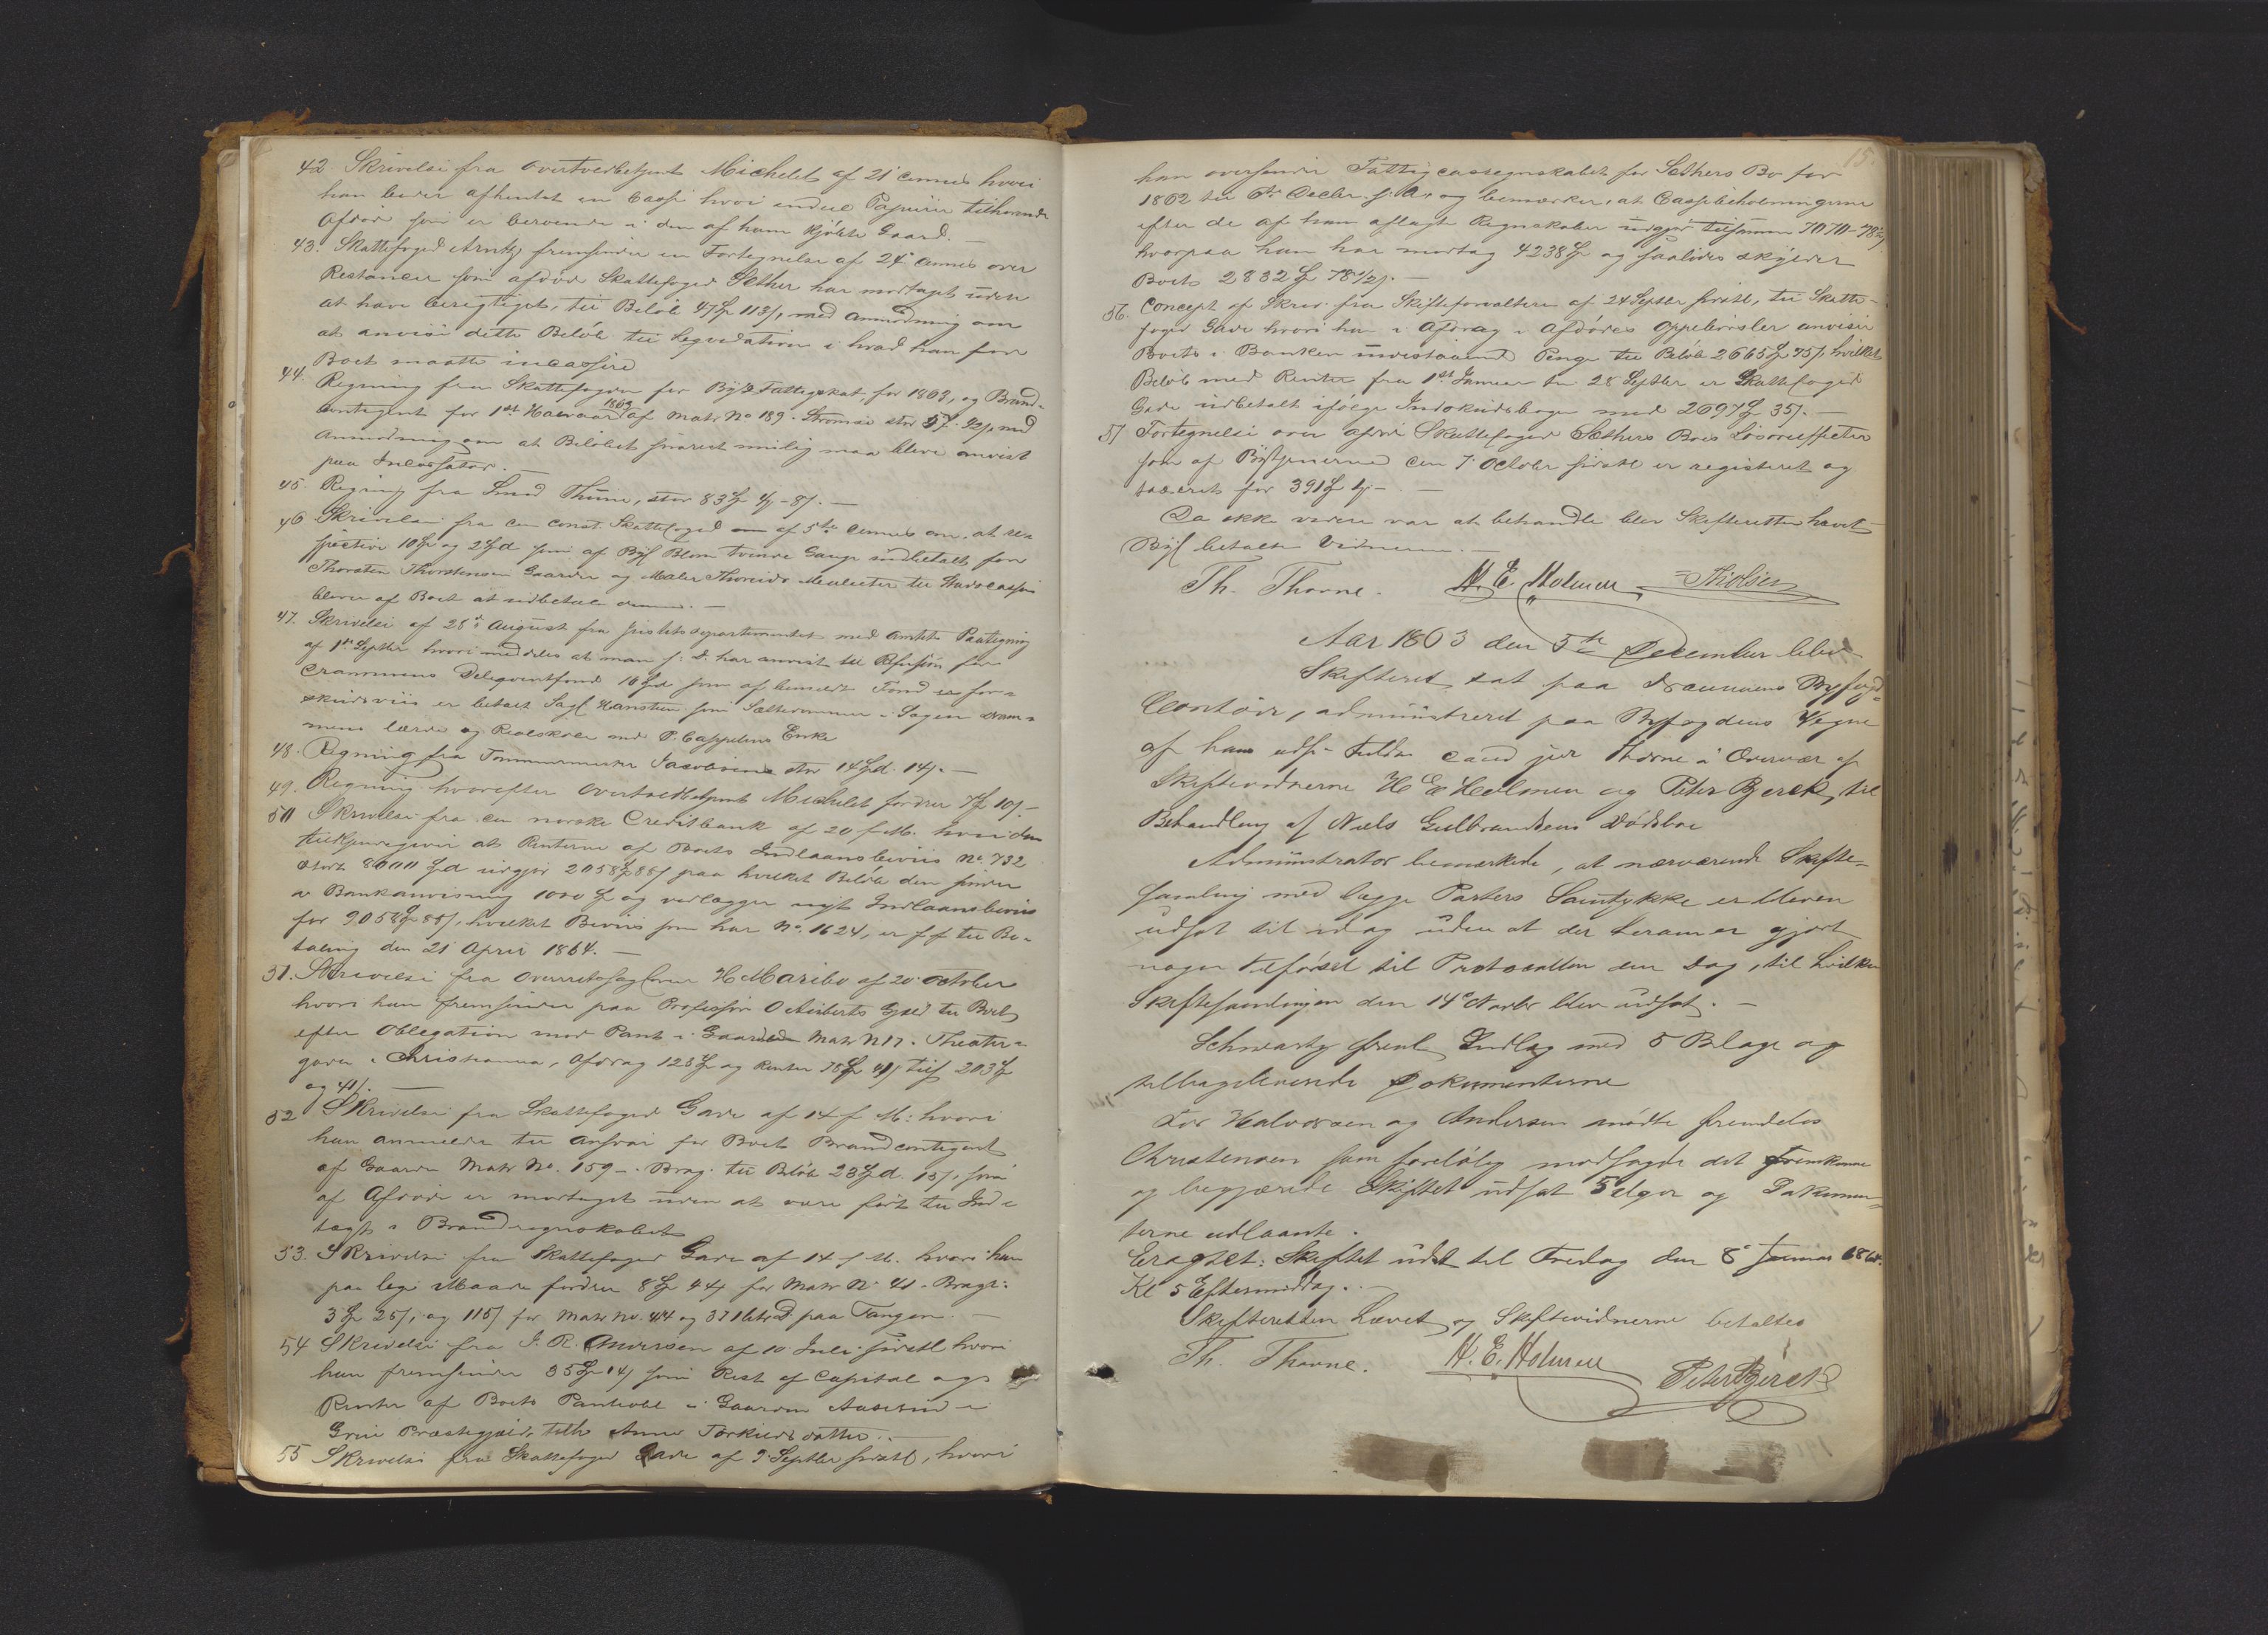 42 Skrivelse fra Overtoldbetjent Michelet af 21 dennes hvori
han beder afhentet en Casse hvori endeel Papirer tilhørende
Afdøde som er beroende i den af ham kjøbte Gaard.
43. Skattefoged Arntz fremsender en Fortegnelse af 24 dennes over
Restancer som afdøde Skattefoged Sether har modtaget uden
at have berigtiget, til Beløb 47 113/, med Anmodning om
at anvise dette Beløb til Liqvidation i hvad han for
Boet maatte incassere
44. Regning fra Skattefogden for Fattigskat for 1863, og Brand-
contigent for 1st Halvaar 1863 af Matr No 189. Strømsø stor med
Anmodning om at Beløbet snarest mulig maa blive anvist
paa Incassator.
45. Regning fra Smed Thune, stor 83 - 8/. —
46 Skrivelse fra den const. Skattefoged af 5te dennes om, at re-
spective 10 og 2 som af Byf Blom tvende Gange indbetalt for
Thorsten Thorstensen Gaarder og Maler til
bliver af Boet at udbetale denne. —
47. Skrivelse af 28de August fra Justitsdepartementet med Amtets Paategning
af 1ste Septbr hvori meddeles at man har anvist til Refusion for
Drammens Deleqventfond 16 som af bemeldte Fond er for-
skudsviis er betalt Sagf Hansteen som Settedommer i Sagen Dram-
mens lærde og Realskole med P. Cappelens Enke
48. Regning fra Tømmermester Jacobsen stor 14 14/. —
49. Regning hvorefter Overtoldbetjent Michelet fordrer 7 10/ —
50 Skrivelse fra den norske Creditbank af 20 f. M. hvori den
tilkjendegiver at Renterne af Boets Indlaansbeviis No 732
stort 8000 udgjør 2058 88/ paa hvilket Beløb den sender
Bankanvisning 1000 og vedlægger nyt Indlaansbeviis
for 9058 88/, hvilket Beviis som har No. 1624, er til Be-
taling den 21 April 1864. —
51. Skrivelse fra Overretssagfører H Maribo af 20 October
hvori han fremsender paa Professor O Auberts Gjæld til Boet
efter Obligation mod Pant i Gaarden Matr N 17. Theater-
gaden i Christiania, Afdrag 128 og Renter 75 41/ tils 203
og 41/. —
52 Skrivelse fra Skattefoged Gade af 14 f M: hvori
han anmelder til Ansvar for Boet Brandcontigent
af Gaarden Matr No. 159 — Brag. til Beløb 23 15/, som
af Afdøde er modtaget uden at være ført til Ind-
tægt i Brandregnskabet
53. Skrivelse fra Skattefoged Gade af 14 f M. hvori han
paa lige Maade fordrer 8 44/ for Matr No 41. Brag:
3 25/, og 115/ for Matr No. 44 og 371 litr d paa Tangen. —
54 Skrivelse fra J. R. Andersen af 10 Juli sidstl hvori
han fremsender 35 14/ som Rest af Capital og
Renter af Boets Panteobl i Gaarden i
Præstegjæld, tilh Anne Torkildsdatter. —
55 Skrivelse fra Skattefoged Gade af 9 Septbr sidstl, hvori
15.
han oversender Fattigcasseregnskabet for Sethers Bo for
1862 til 6te Decbr. s. A, og bemærker, at Cassebeholdningerne
efter de af ham aflagte Regnskaber udgjør tilsammen 7070 – 78½/
hvorpaa han har modtag 4238 og saaledes skylder
Boet 2832 78½/. —
56. Concept af Skriv. fra Skifteforvalteren af 24 Septbr sidstl, til Skatte-
foged Gade hvori han i Afdrag i Afdødes Oppebørsler anviser
Boets i Banken indestaaende Penge til Beløb 2665 75/, hvilket
Beløb med Renter fra 1st Januar til 28 Septbr er Skattefoged
Gade udbetalt ifølge Indskudsbogen med 2697 35/. —
57 Fortegnelse over afdøde Skattefoged Sethers Boes Løsøreeffecter
som af Byetjenerne den 7 October sidstl er registeret og
taxeret for 391 —
Da ikke videre var at behandle blev Skifteretten hævet
Byf betalte Vidnerne. —
Th. Thorne. H. E. Holmen
Aar 1863 den 5te December blev
Skifteret sat paa Drammens Byfogd-
Contoir, administreret paa Byfogdens Vegne
af hans edsv. Fuldm cand jur Thorne i Overvær af
Skiftevidnerne H E Holmen og Peter Bjerck, til
Behandling af Niels Gulbrandsens Dødsboe
Administrator bemærkede, at nærværende Skifte-
samling med begge Parters Samtykke er bleven
udsat til idag uden at der derom er gjort
nogen Tilførsel til Protocollen den Dag, til hvilken
Skiftesamlingen den 14de Novbr blev udsat. —
Schwartz freml Indlæg med 5 Bilage og
tilbageleverede Dokumenterne
For Halvorsen og Andersen mødte fremdeles
Christensen som foreløbig modsagde det Fremkomne
og begjærede Skiftet udsat 5 Uger og Dokumen-
terne udlaante.
Eragtet: Skiftet udst til Fredag den 8de Januar 1864.
Kl 5 Eftermiddag. —
Skifteretten hævet og Skiftevidnerne betaltes
Th. Thorne. H. E. Holmen Peter Bjerck